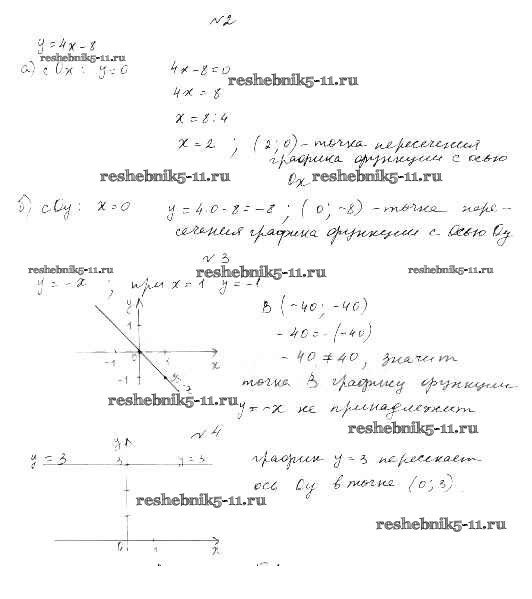 №2
y=4x-8
reshebnik5-11.ru
а) с Ox: y=0 4x-8=0
reshebnik5-11.ru
4x=8
x=8:4
x=2 ; (2;0) - точка пересечения
графика функции с осью
reshebnik5-11.ru Ox reshebnik5-11.ru
б) с Oy: x=0 y=4·0-8=-8 ; (0;-8) - точка пере-
сечения графика функции с осью Oy
reshebnik5-11.ru
№3
reshebnik5-11.ru reshebnik5-11.ru reshebnik5-11.ru
y=-x ; при x=1 y=-1
y
1
-1 0 1 x
-1
y=-x
B (-40; -40)
-40=-(-40)
-40≠40, значит
точка B графику функции
y=-x не принадлежит
reshebnik5-11.ru
reshebnik5-11.ru
№4
y
y=3 3 y=3
график y=3 пересекает
ось Oy в точке (0;3).
reshebnik5-11.ru
reshebnik5-11.ru
0 1 x